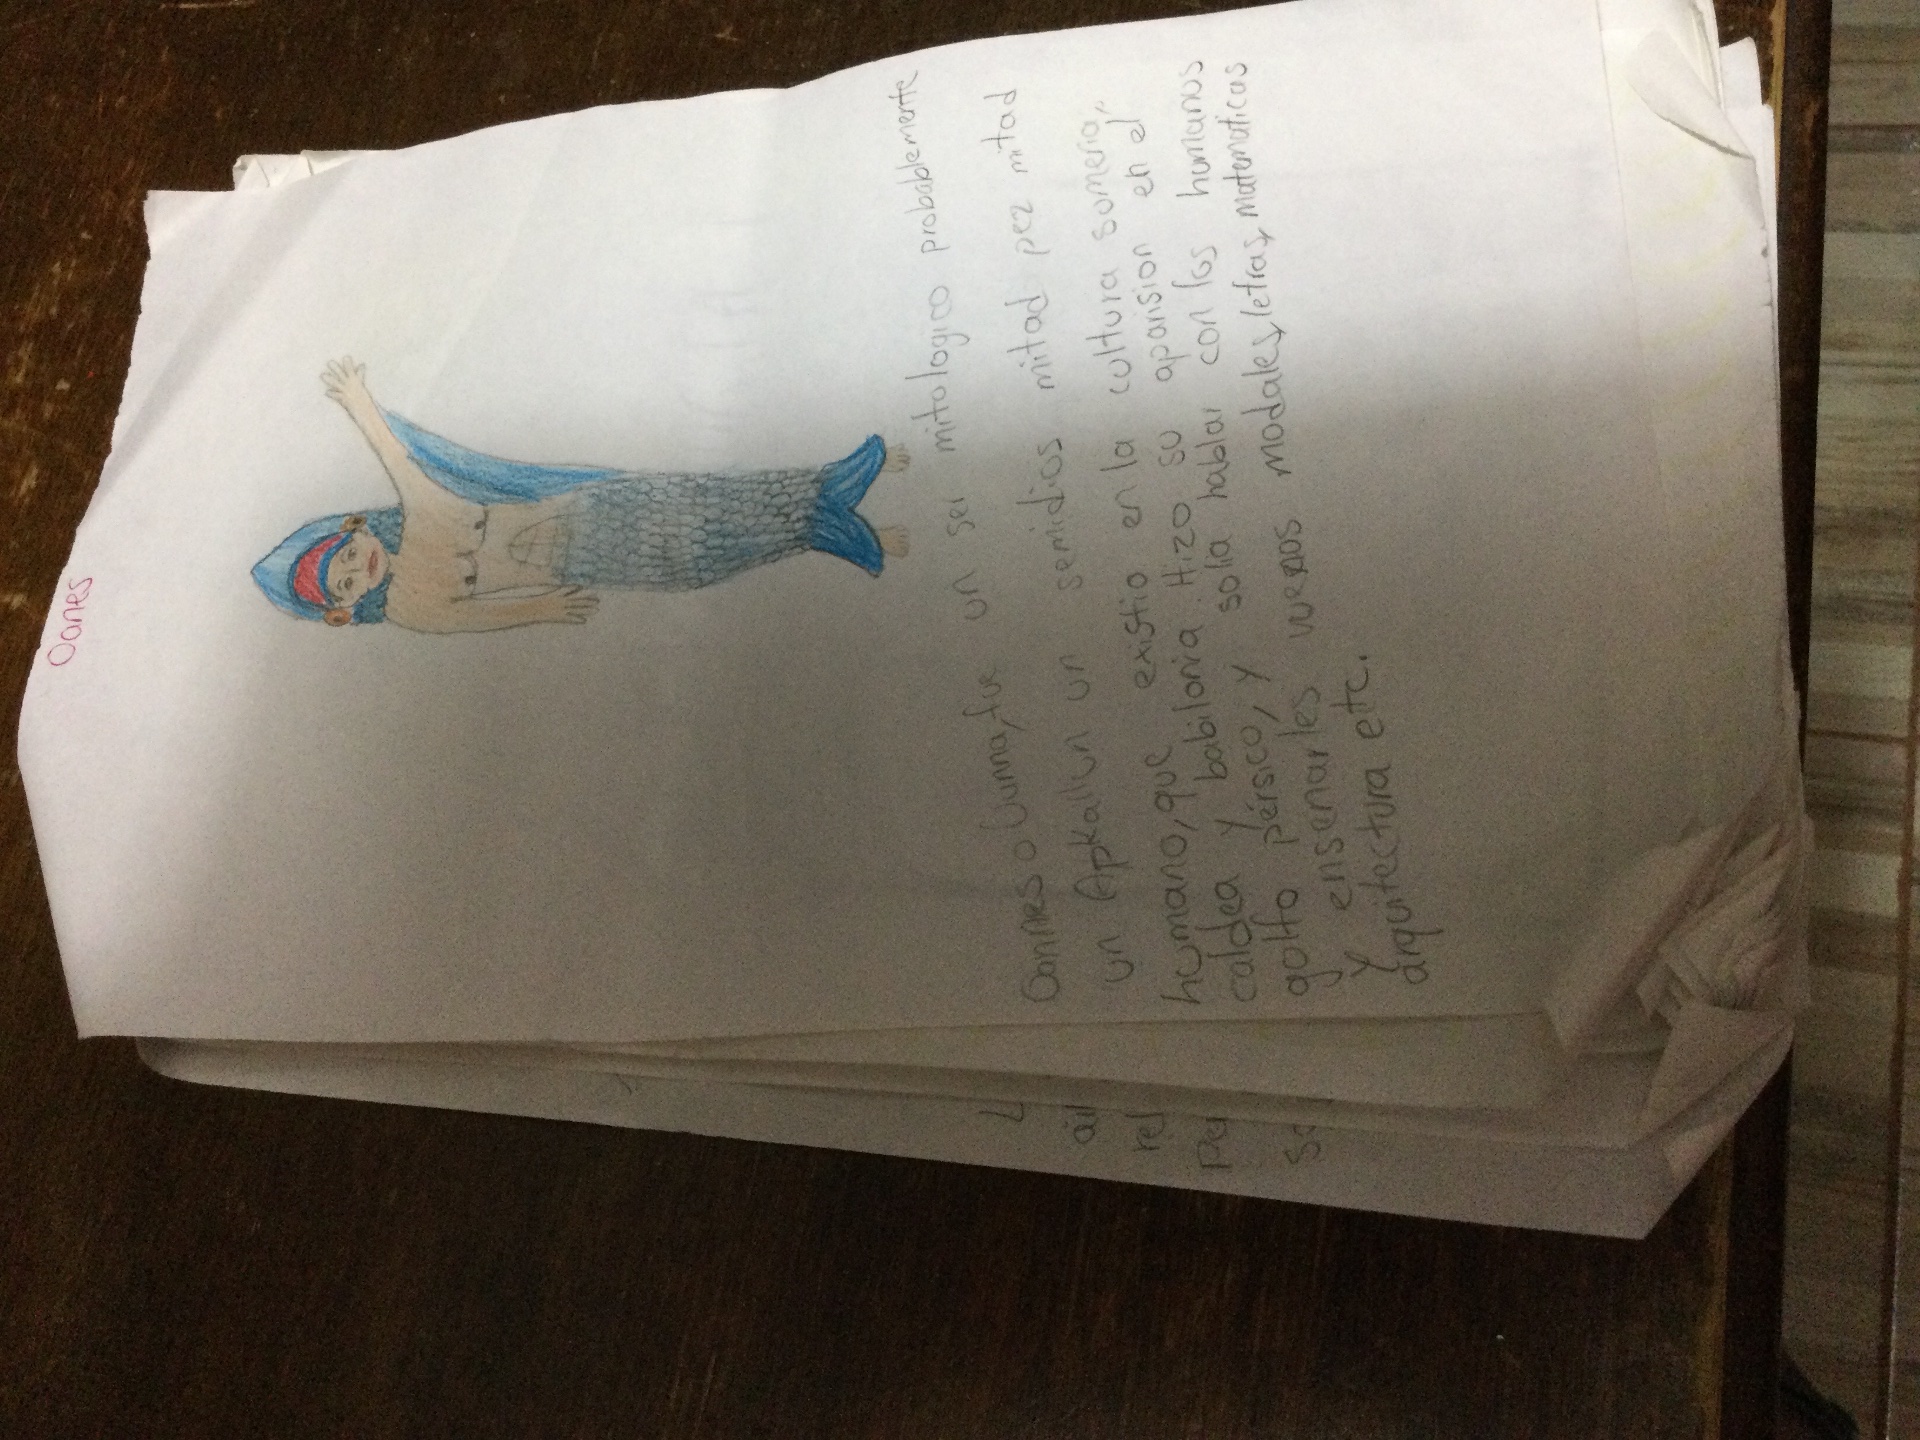 Oanes
Oannes o Uunna, fue un ser mitologico probablemente
un Apkallu un semidios mitad pez mitad
humano, que existio en la cultura sumeria,
caldea y babilonia. Hizo su aparision en el
golfo pérsico, y solia hablar con los humanos
y enseñarles modales, letras, matematicas
y arquitectura etc.
L
rel